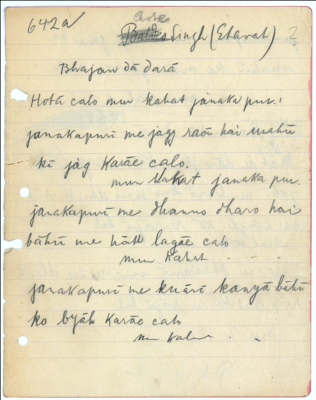 642a
Singh (Etavah) 2
Bhajan dā darā
Hotā calo mun kahat janaka pur.
janakapurī me jagg racī hai
kī jāg karāe calo.
mun kahat janaka pur.
janakapurī me dhannu dharo hai
bāhū me hāth lagāe calo
mun kahat . . .
janakapurī me kuārī kanyā
ko byāh karāe calo